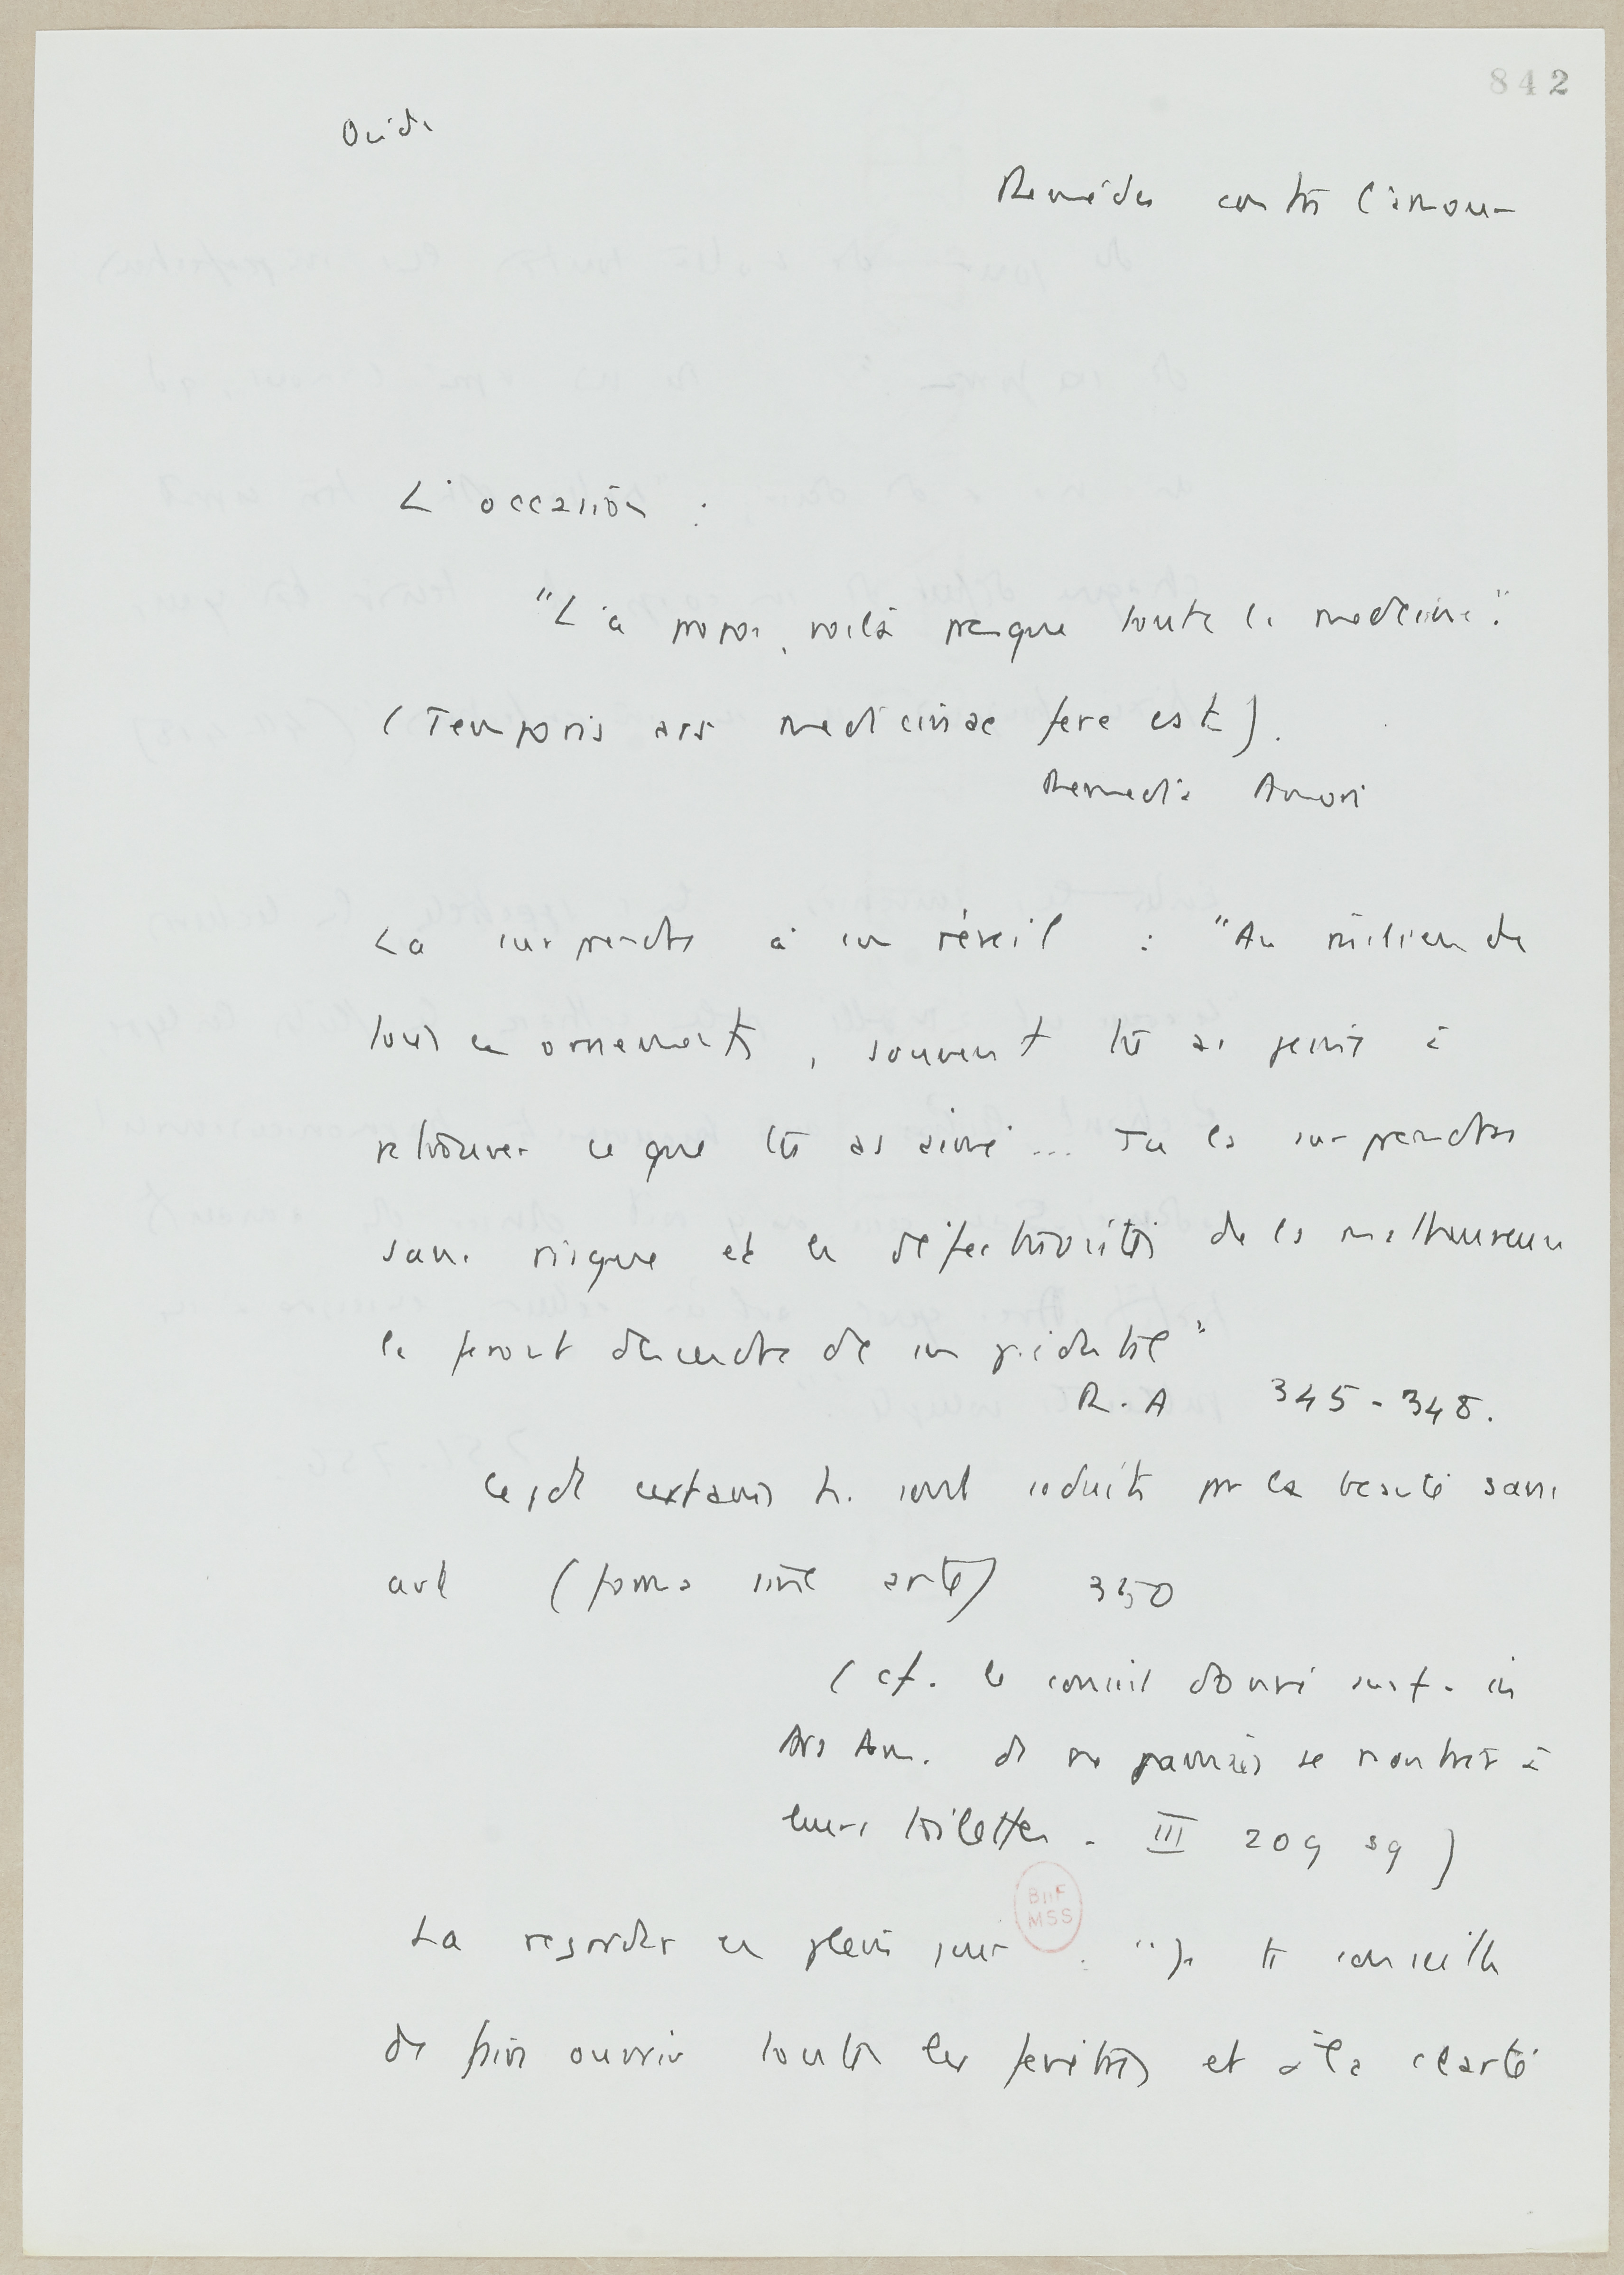 842
Ovide
Remèdes contre l'amour
L'occasion :
"L'à propos, voilà presque toute la médecine."
(Temporis ars medicinae fere est).
Remedia Amori
La surprendre à son réveil : "Au milieu de
tous ces ornements, souvent tu as peine à
retrouver ce que tu as aimé... Tu la surprendras
sans risque et les défectuosités de la malheureuse
la feront descendre de son piédestal"
R.A 345-348.
Cepdt certains h. sont séduits par la beauté sans
art (forma sine arte) 350
(cf. le conseil donné aux f. in
Ars Am. de ne jamais se montrer à
leurs toilettes. III 209 sq)
La regarder en plein jour : "Je te conseille
de faire ouvrir toutes les fenêtres et à la clarté
BnF
MSS